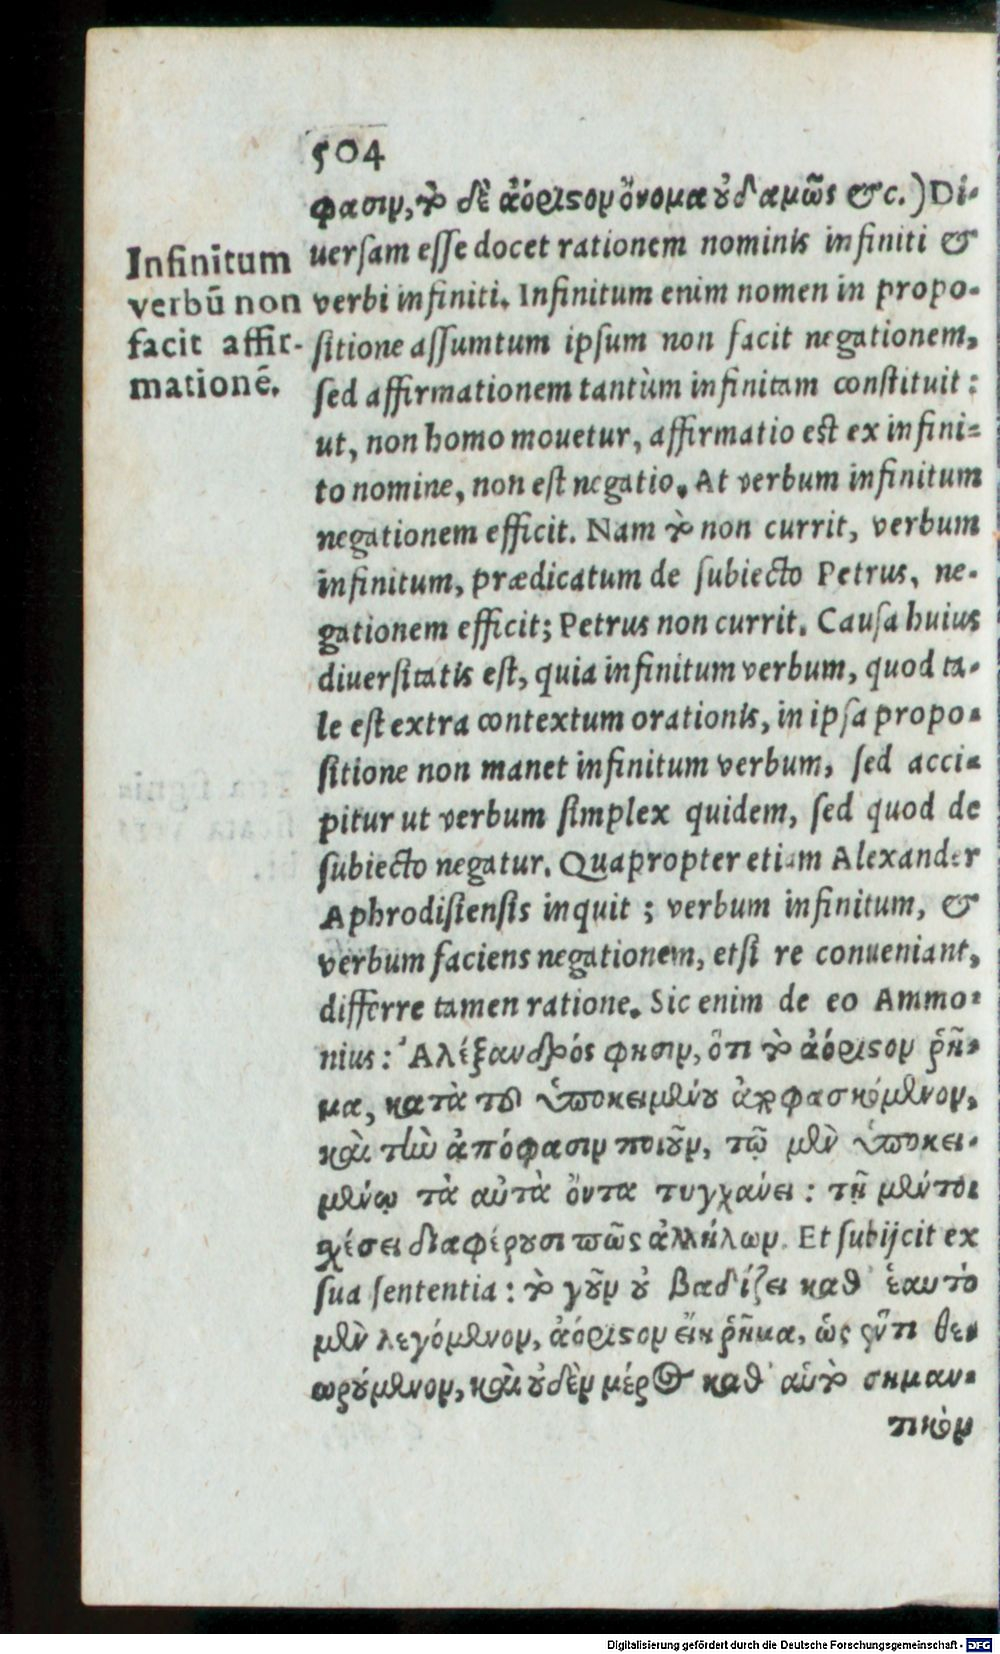 504
φασιν, τὸ δὲ ἀόριστον ὄνομα οὐδαμῶς &c.) Di-
uersam esse docet rationem nominis infiniti &
verbi infiniti. Infinitum enim nomen in propo-
sitione assumtum ipsum non facit negationem,
sed affirmationem tantùm infinitam constituit:
ut, non homo mouetur, affirmatio est ex infini-
to nomine, non est negatio. At verbum infinitum
negationem efficit. Nam τὸ non currit, verbum
infinitum, prædicatum de subiecto Petrus, ne-
gationem efficit; Petrus non currit. Causa huius
diuersitatis est, quia infinitum verbum, quod ta-
le est extra contextum orationis, in ipsa propo-
sitione non manet infinitum verbum, sed acci-
pitur ut verbum simplex quidem, sed quod de
subiecto negatur. Quapropter etiam Alexander
Aphrodisiensis inquit; verbum infinitum, &
verbum faciens negationem, etsi re conueniant,
differre tamen ratione. Sic enim de eo Ammo-
nius: Ἀλέξανδρός φησιν, ὅτι τὸ ἀόριστον ῥῆ-
μα, κατὰ τοῦ ὑποκειμένου ἀποφασκόμενον,
καὶ τὴν ἀπόφασιν ποιοῦν, τῷ μὲν ὑποκει-
μένῳ τὰ αὐτὰ ὄντα τυγχάνει: τῇ μέντοι
σχέσει διαφέρουσι πῶς ἀλλήλων. Et subijcit ex
sua sententia: τὸ γοῦν οὐ βαδίζει καθ' ἑαυτὸ
μὲν λεγόμενον, ἀόριστον εἶναι ῥῆμα, ὡς ἕν τι θε-
ωρούμενον, καὶ οὐδὲν μέρος καθ' αὑτὸ σημαν-
τικὸν
Infinitum
verbū non
facit affir-
mationē.
Digitalisierung gefördert durch die Deutsche Forschungsgemeinschaft - DFG